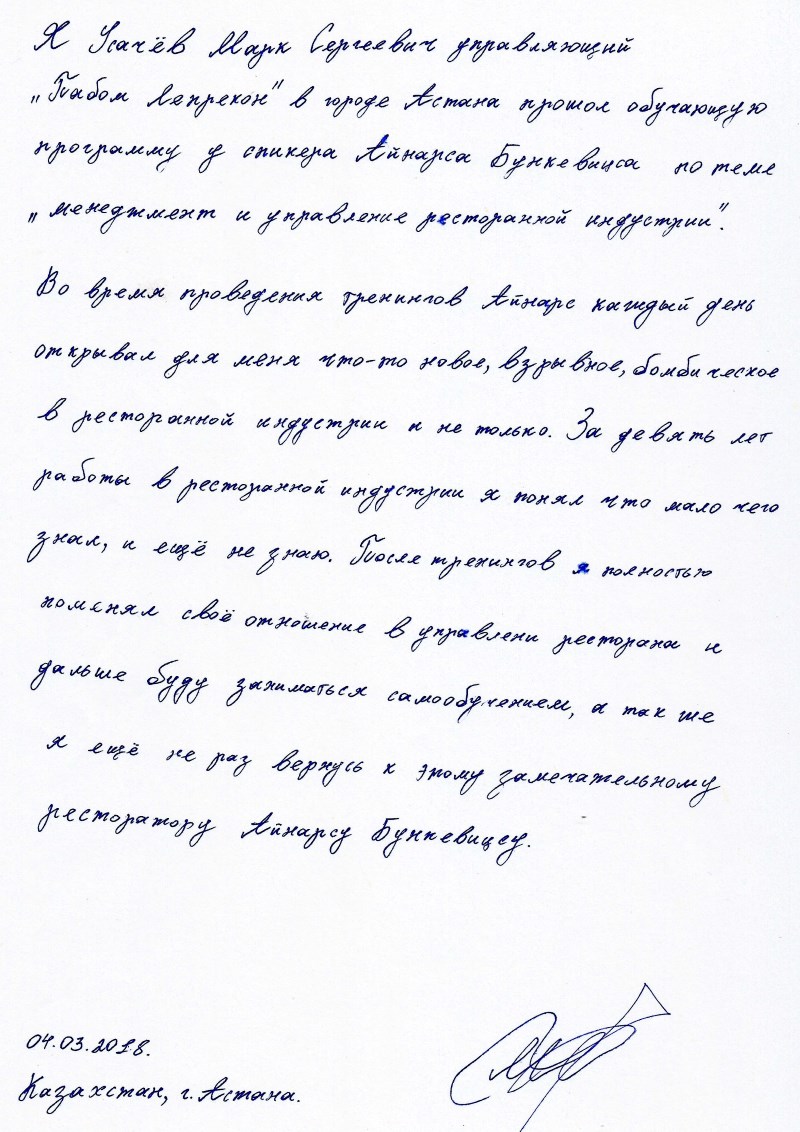 Я Усачёв Марк Сергеевич управляющий
„Пабом Лепрекон" в городе Астана прошол обучающую
программу у спикера Айнарса Бункевицса по теме
„менеджмент и управление ресторанной индустрии".
Во время проведения тренингов Айнарс каждый день
открывал для меня что-то новое, взрывное, бомбическое
в ресторанной индустрии и не только. За девять лет
работы в ресторанной индустрии я понял что мало чего
знал, и ещё не знаю. После тренингов я полностью
поменял своё отношение в управлени ресторана и
дальше буду заниматься самообучением, а так же
я ещё не раз вернусь к этому замечательному
ресторатору Айнарсу Бункевицсу.
04.03.2018.
Казахстан, г. Астана.